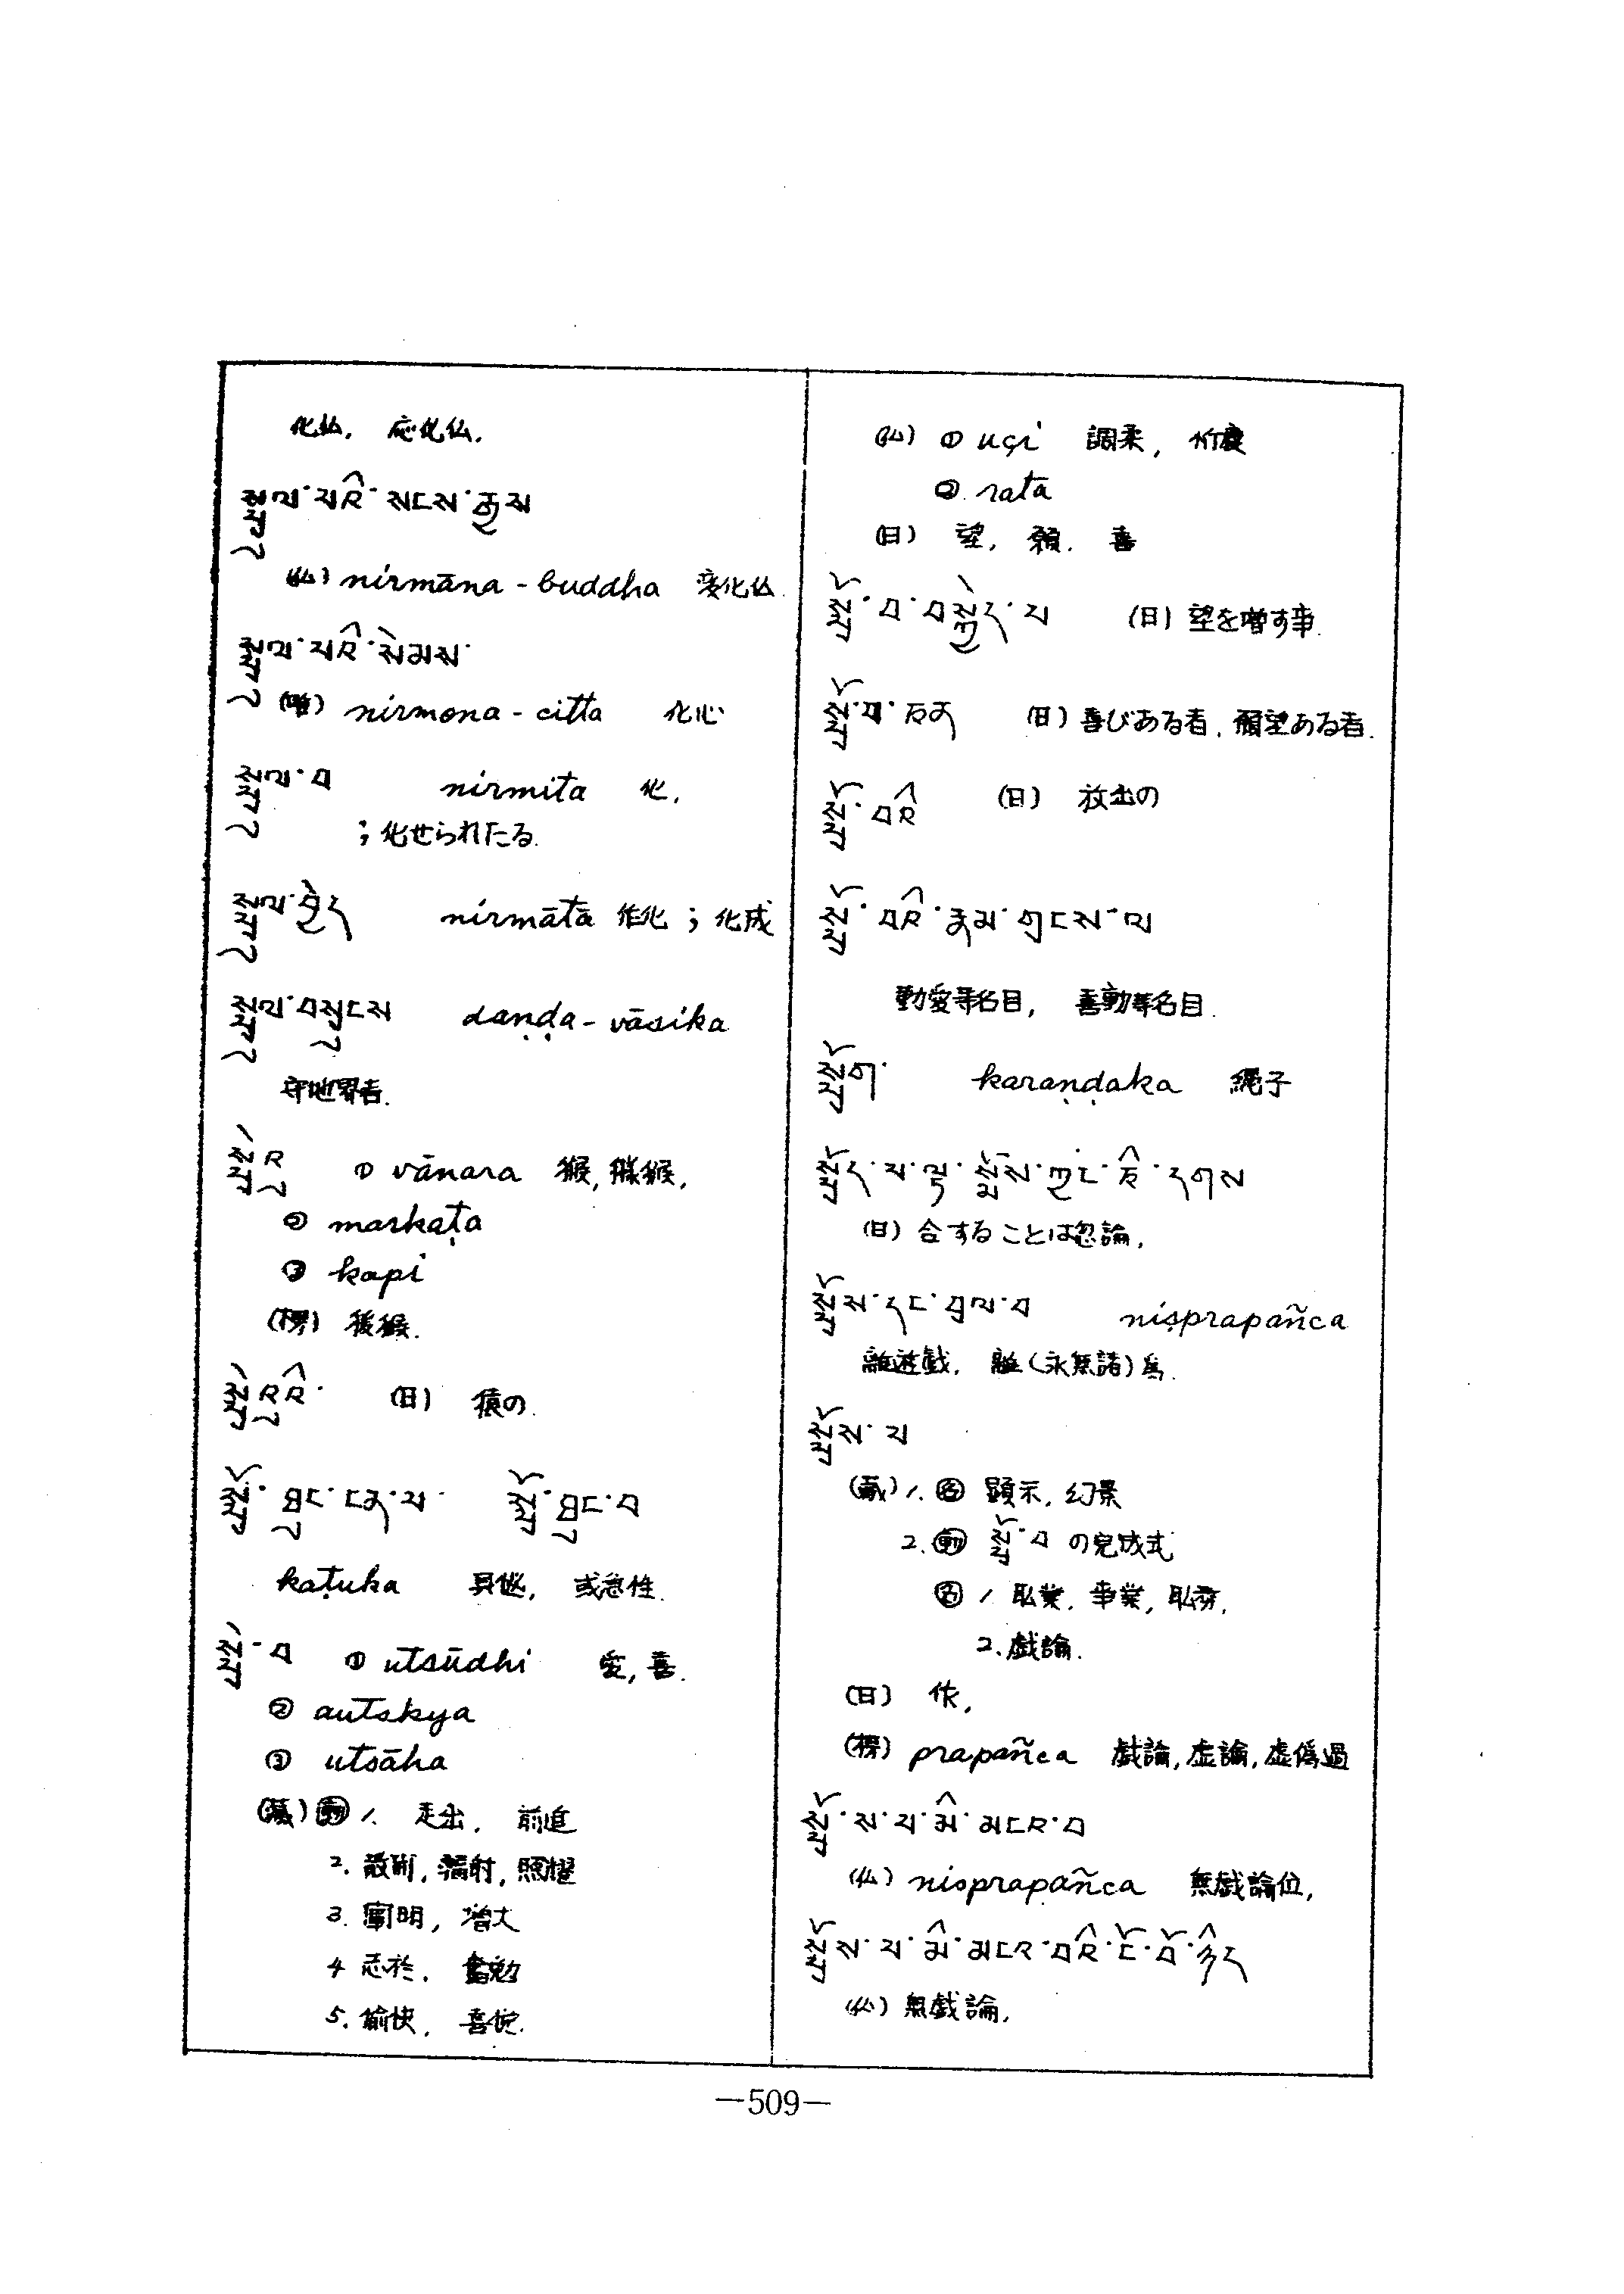 化仏, 応化仏.
སྤྲུལ་པའི་སངས་རྒྱས
(仏) nirmāna - buddha 変化仏.
སྤྲུལ་པའི་སེམས་
(唯) nirmona - citta 化心
སྤྲུལ་བ nirmita 化.
; 化せられたる.
སྤྲུལ་བྱེད nirmātā 作化 ; 化成
སྤྲུལ་བསྲུངས daṇḍa - vāsika
守地界者.
སྤྲེའུ ① vānara 猴, 獼猴.
② markaṭa
③ kapi
(楞)
སྤྲེའུའི་ (日) 猿の.
སྤྲོ་ཐུང་ངན་པ་ སྤྲོ་ཐུང་བ
kaṭuka 具 , 或急性.
སྤྲོ་བ ① utsūdhi 愛, 喜.
② autskya
③ utsāha
(蔵) 動 1. 走出, 前進
2. 散 , 輻射, 照耀
3. 明, 増大
4 志於, 奮勉
5. 愉快, 喜悅.
(仏) ① uçi 調柔,
② ratā
(日) 望, 願. 喜
སྤྲོ་བ་བསྐྱེད་པ (日) 望を増す事.
སྤྲོ་བ་ཅན (日) 喜びある者, 願望ある者.
སྤྲོ་བའི (日) 放出の
སྤྲོ་བའི་རྣམ་གྲངས་ལ
動愛等名目, 喜動等名目.
སྤྲོག་ karaṇḍaka 繩子
སྤྲོད་པ་ལྟ་ དགས
(日) 合することは 論.
སྤྲོས་དང་བྲལ་བ niṣprapañca
離遊戯, 離(永無諸)
སྤྲོས་པ
(蔵) 1. 名 顕示, 幻景
2. 動 སྤྲོ་བ の完成式
名 1 職業, 事業, 職務.
2. 戯論.
(日) 作,
(楞) prapañca 戯論, 虚論, 虚偽過
སྤྲོ་ས་པ་མི་མངར་བ
(仏) nisprapañca 無戯論位,
སྤྲོས་པ་མི་མངར་བའི་ངོ་བོ་ཉིད
(仏) 無戯論,
—509—